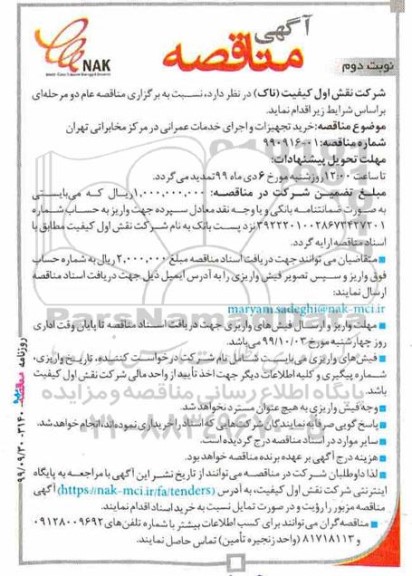 آگهی
مناقصه
نوبت دوم
NAK
شرکت نقش اول کیفیت (ناک) در نظر دارد، نسبت به برگزاری مناقصه عام دو مرحله‌ای
براساس شرایط زیر اقدام نماید.
موضوع مناقصه: خرید تجهیزات و اجرای خدمات عمرانی در مرکز مخابراتی تهران
شماره مناقصه: ۹۹۰۹۱۶-۰۱
مهلت تحویل پیشنهادات:
تا ساعت ۱۲:۰۰ روز شنبه مورخ ۶ دی ماه ۹۹ تمدید می‌گردد.
مبلغ تضمین شرکت در مناقصه: ۱,۰۰۰,۰۰۰,۰۰۰ ریال که می‌بایستی
به صورت ضمانتنامه بانکی و یا وجه نقد معادل سپرده جهت واریز به حساب شماره
۳۹۲۲۲۰۱۰۰۲۸۶۷۳۲۷۲۰۱ نزد پست بانک به نام شرکت نقش اول کیفیت مطابق با
اسناد مناقصه ارایه گردد.
■ متقاضیان می توانند جهت دریافت اسناد مناقصه مبلغ ۲,۰۰۰,۰۰۰ ریال به شماره حساب
فوق واریز و سپس تصویر فیش واریزی را به آدرس ایمیل ذیل جهت دریافت اسناد مناقصه
ارسال نمایند:
maryam.sadeghi@nak-mci.ir
■ مهلت واریز و ارسال فیش‌های واریزی جهت دریافت اسناد مناقصه تا پایان وقت اداری
روز چهارشنبه مورخ ۹۹/۱۰/۰۳ می‌باشد.
■ فیش‌های واریزی می‌بایست شامل نام شرکت درخواست کننده، تاریخ واریزی،
شماره پیگیری و کلیه اطلاعات دیگر جهت اخذ تأیید از واحد مالی شرکت نقش اول کیفیت
باشد.
■ وجه فیش واریزی به هیچ عنوان مسترد نخواهد شد.
■ پاسخ گویی صرفا به نمایندگان شرکت‌های که اسناد را خریداری نموده‌اند، انجام خواهد شد.
■ سایر موارد در اسناد مناقصه درج گردیده است.
■ هزینه درج آگهی بر عهده برنده مناقصه خواهد بود.
■ لذا داوطلبان شرکت در مناقصه می‌توانند از تاریخ نشر این آگهی با مراجعه به پایگاه
اینترنتی شرکت نقش اول کیفیت، به آدرس (https://nak-mci.ir/fa/tenders) آگهی
مناقصه مزبور را رؤیت و در صورت تمایل نسبت به خرید اسناد اقدام نمایند.
■ مناقصه گران می‌توانند برای کسب اطلاعات بیشتر با شماره تلفن‌های ۰۹۱۲۸۰۰۹۶۹۲
و ۸۱۷۱۸۱۱۳ (واحد زنجیره تأمین) تماس حاصل نمایند.
روزنامه
۹۹/۰۹/۳۰
ParsNamadData
پایگاه اطلاع رسانی مناقصه و مزایده